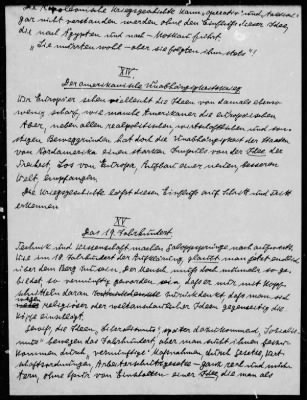 Die Napoleonische Kriegsgeschichte kann, operativ und
gar nicht verstanden werden ohne den Einfluss dieser Idee,
die nach Ägypten und nach Moskau führt.
"Sie murrten wohl - aber sie folgten ihm stets"!
XIV
Der amerikanische Unabhängigkeitskrieg
Wir Europäer sehen vielleicht die Ideen von damals ebenso
wenig scharf, wie manche Amerikaner die europäischen
Aber, neben allen realpolitischen wirtschaftlichen und sonstigen
Beweggründen hat doch die Unabhängigkeit der Staaten
von Nordamerika einen starken Impuls von der Idee der
Freiheit, Los von Europa, Aufbau einer neuen, besseren
Welt empfangen.
Die Kriegsgeschichte lässt diesen Einfluss auf Schritt und Tritt
erkennen
XV
Das 19. Jahrhundert.
Technik und Wissenschaft machen Galoppsprünge nach aufwärts.
Wie im 18. Jahrhundert der Aufklärung, glaubt man jetzt endlich
über dem Berg zu sein. Der Mensch muss doch nunmehr so gebildet,
so vernünftig geworden sein, dass er mit Kopfschütteln
daran zurückdenkt, dass man sich
wegen religiöser oder weltanschaulicher Ideen gegenseitig die
Köpfe einschlägt.
die Ideen, Liberalismus, später dazukommend, Sozialismus
bewegen das Jahrhundert, aber man wird ihnen
durch "vernünftige" Massnahmen, durch Gesetze,
Arbeiterschutzgesetze - ganz real und nüchtern,
ohne Spur von einer Idee, die man als